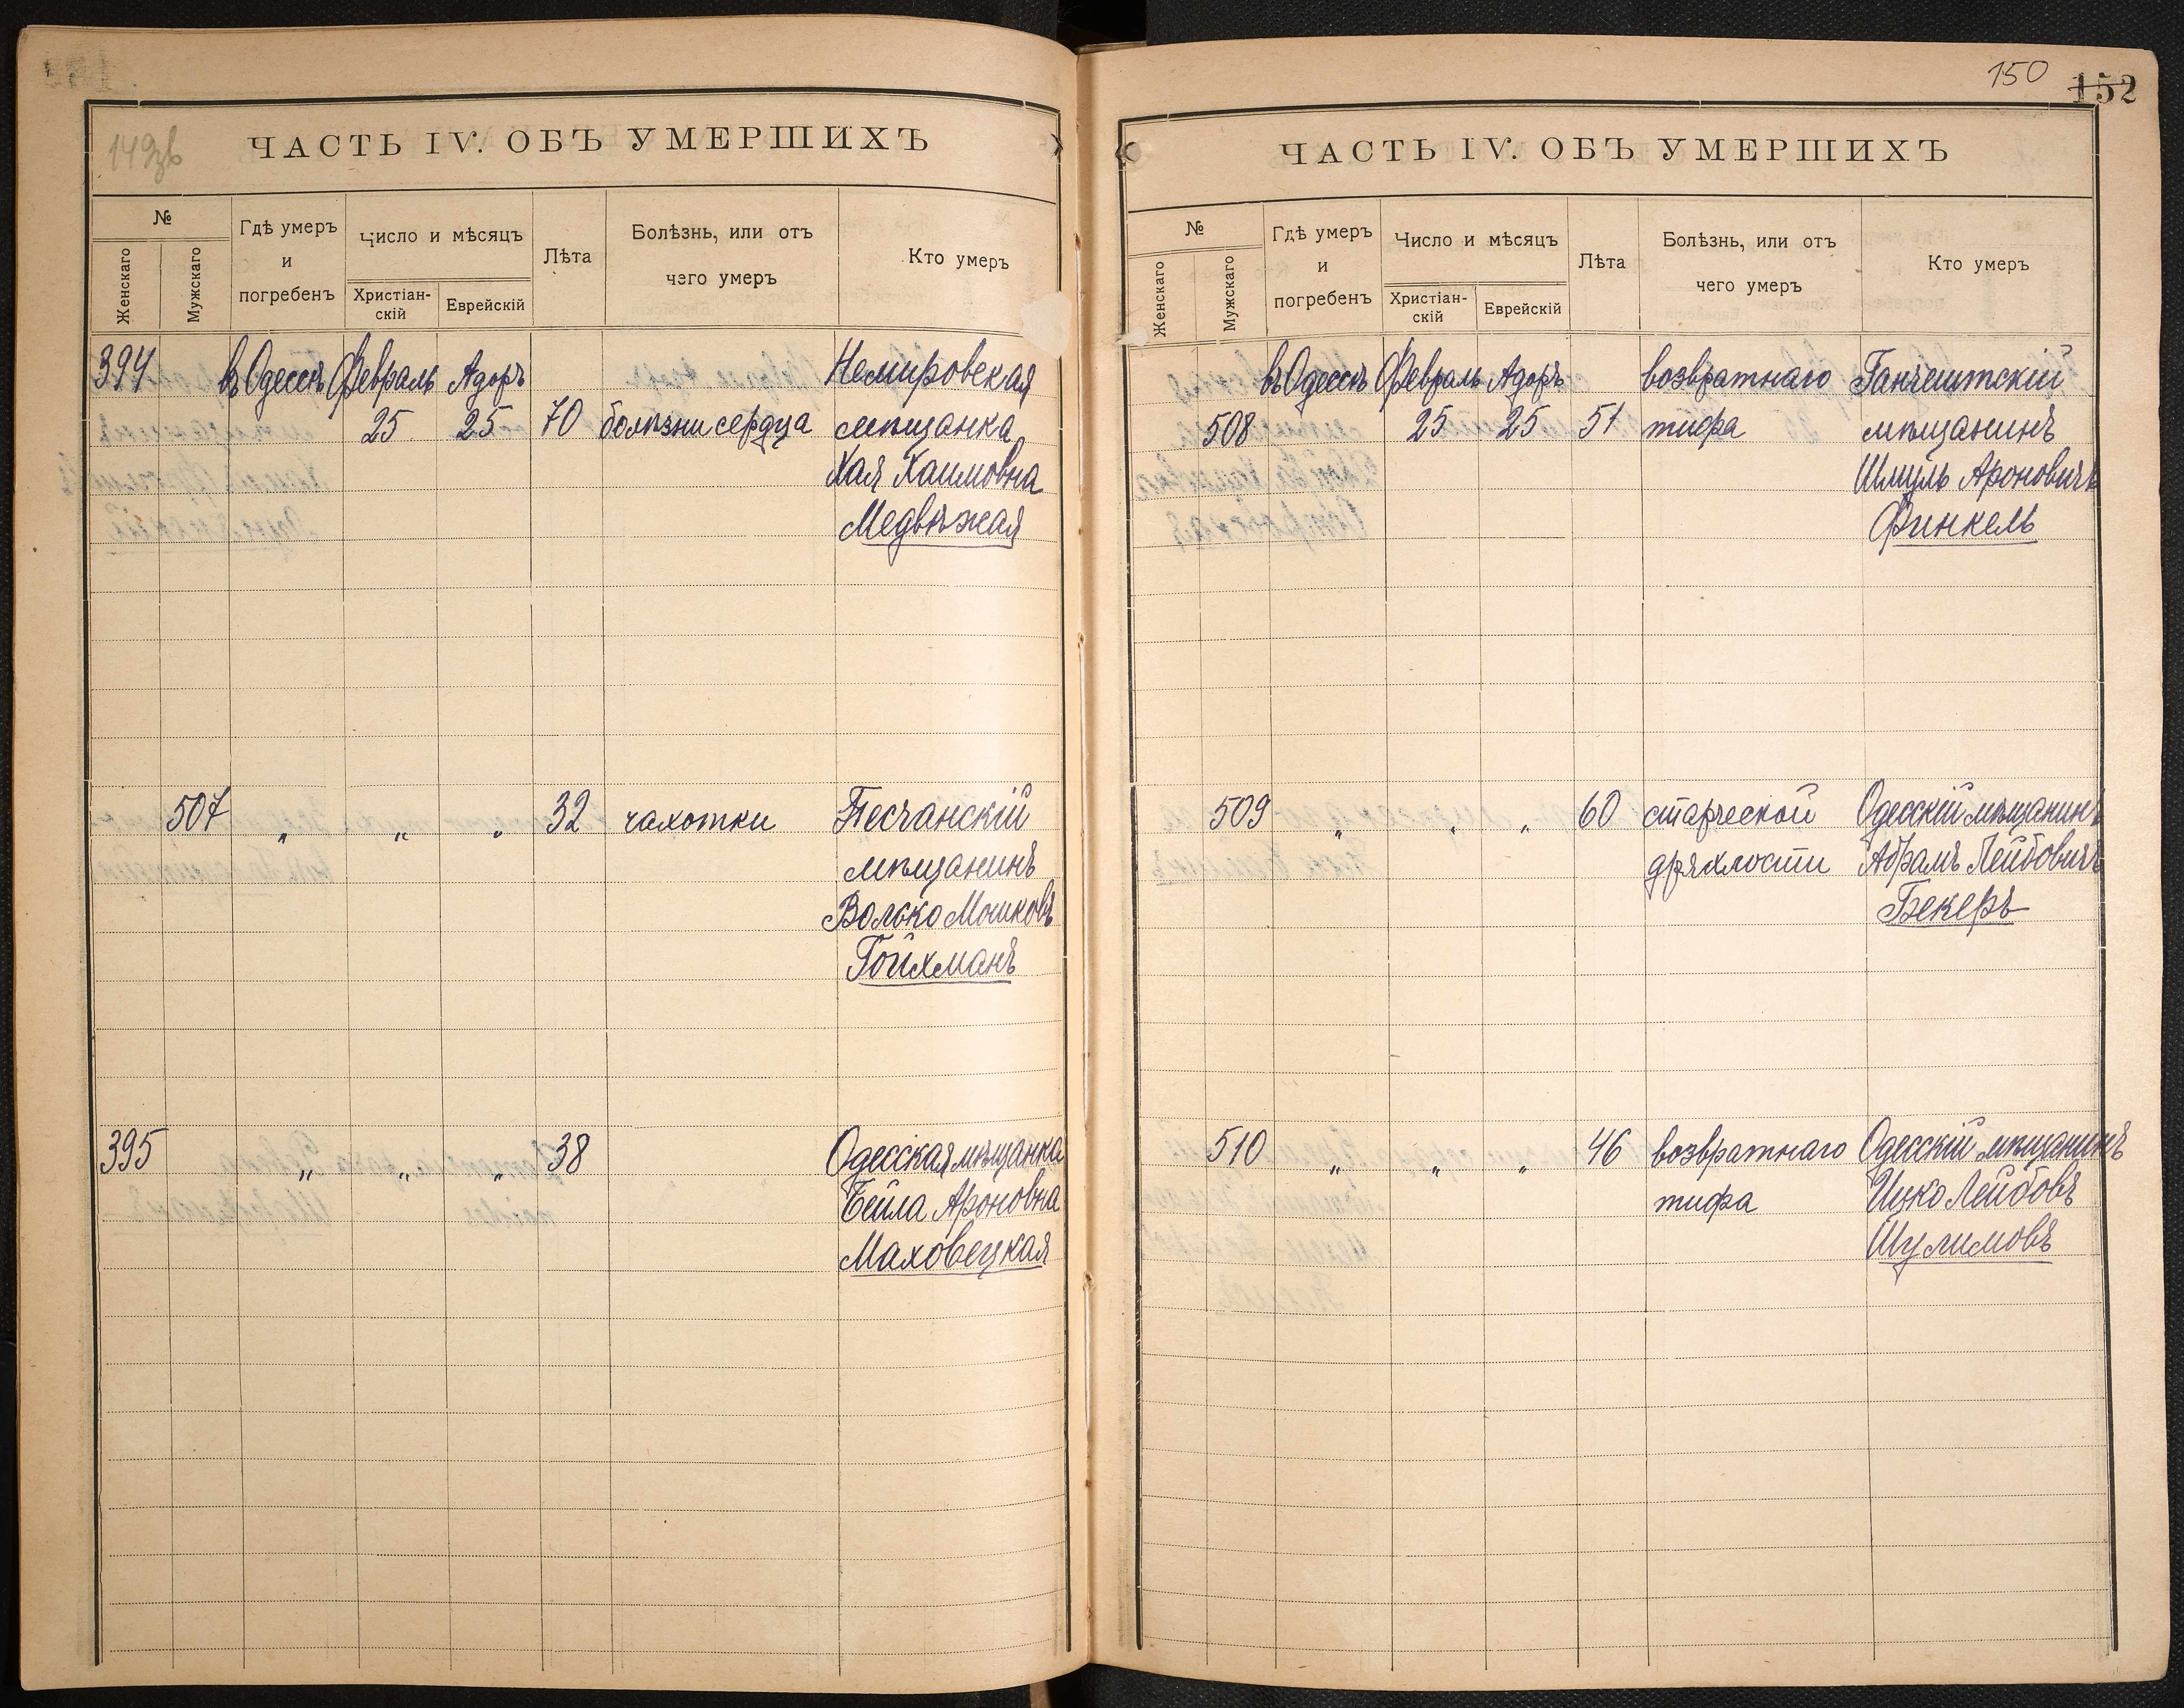 149зв
ЧАСТЬ IV. ОБЪ УМЕРШИХЪ
№
Женскаго
Мужскаго
Гдѣ умеръ
и
погребенъ
Число и мѣсяцъ
Христіан-
скій
Еврейскій
Лѣта
Болѣзнь, или отъ
чего умеръ
Кто умеръ
394 въ Одессѣ Февраль Адоръ Немировская
25 25 70 болѣзни сердца мѣщанка
Хая Хаимовна
Медвѣжая
507 " " " 32 чахотки Песчанскій
мѣщанинъ
Волько Мошковъ
Гойхманъ
395 " " " 38 Одесская мѣщанка
Бейла Ароновна
Маховецкая
150 152
ЧАСТЬ IV. ОБЪ УМЕРШИХЪ
№
Женскаго
Мужскаго
Гдѣ умеръ
и
погребенъ
Число и мѣсяцъ
Христіан-
скій
Еврейскій
Лѣта
Болѣзнь, или отъ
чего умеръ
Кто умеръ
въ Одессѣ Февраль Адоръ возвратнаго Ганчештскій
508 25 25 51 тифа мѣщанинъ
Шмуль Ароновичъ
Финкель
509 " " " 60 старческой Одесскій мѣщанинъ
дряхлости Абрамъ Лейбовичъ
Бекеръ
510 " " " 46 возвратнаго Одесскій мѣщанинъ
тифа Ицко Лейбовъ
Шулимовъ